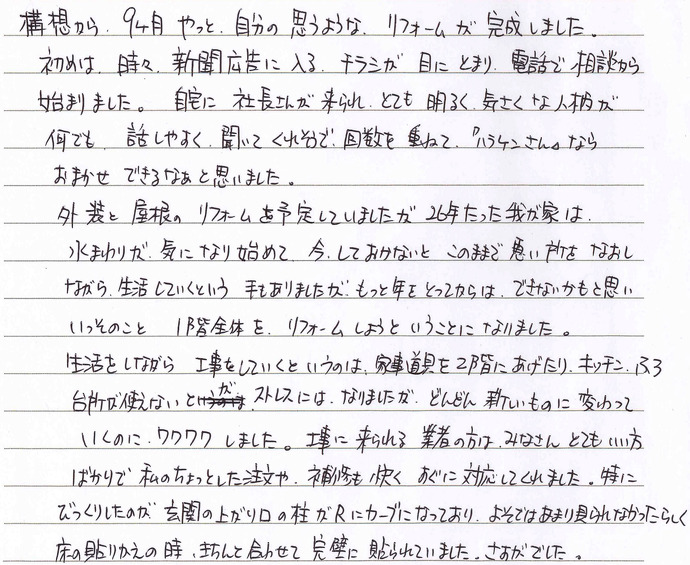 構想から、9ヶ月 やっと、自分の 思うような、リフォームが 完成しました。
初めは、時々、新聞広告に 入る、チラシが 目にとまり、電話で 相談から
始まりました。 自宅に 社長さんが 来られ、とても 明るく、気さくな 人柄が
何でも、話しやすく、聞いて くれそうで、回数を 重ねて、『ハラケンさん』なら
おまかせ できるなあと 思いました。
外装と 屋根の リフォームを予定していましたが 26年たった 我が家は、
水まわりが、気になり始めて、今、しておかないと このままで 悪い所を なおし
ながら、生活していくという 手もありましたが、もっと年をとってからは、できないかもと思い
いっそのこと 1階全体を、リフォームしようと いうことになりました。
生活をしながら 工事をしていくというのは、家事道具を 2階にあげたり、キッチン、ふろ
台所が使えないとが、ストレスには、なりましたが、どんどん 新しいものに 変わって
いくのに、ワクワク しました。工事に 来られる 業者の方は、みなさん とても いい方
ばかりで 私のちょっとした注文や、補修も 快く すぐに 対応してくれました。特に
びっくりしたのが、玄関の上がり口の柱がRにカーブになっており、よそではあまり見られなかったらしく
床の貼りかえの時、きちんと合わせて 完璧に 貼られていました。さすがでした。